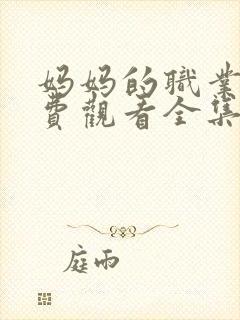 妈妈的職業
費觀看全集
庭雨